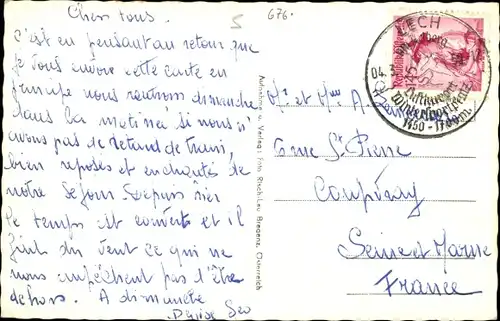 Chers tous.
5
676.
C'est en pensant au retour que
je vous envoie cette carte en
principe nous rentrons dimanche
dans la matinée si nous n'
avons pas de retard de train,
bien reposés et enchantés de
notre séjour. Depuis hier
le temps est couvert et il
fait du vent ce qui ne
nous empêchent pas d'être
dehors. A dimanche
Denise
Aufnahme u. Verlag: Foto Risch-Lau, Bregenz, Österreich
LECH
Arlberg
04.3
Luftkurort
Wintersportplatz
1450-1700m
Mr et Mme A.
6 rue St Pierre
Coupvray
Seine et Marne
France